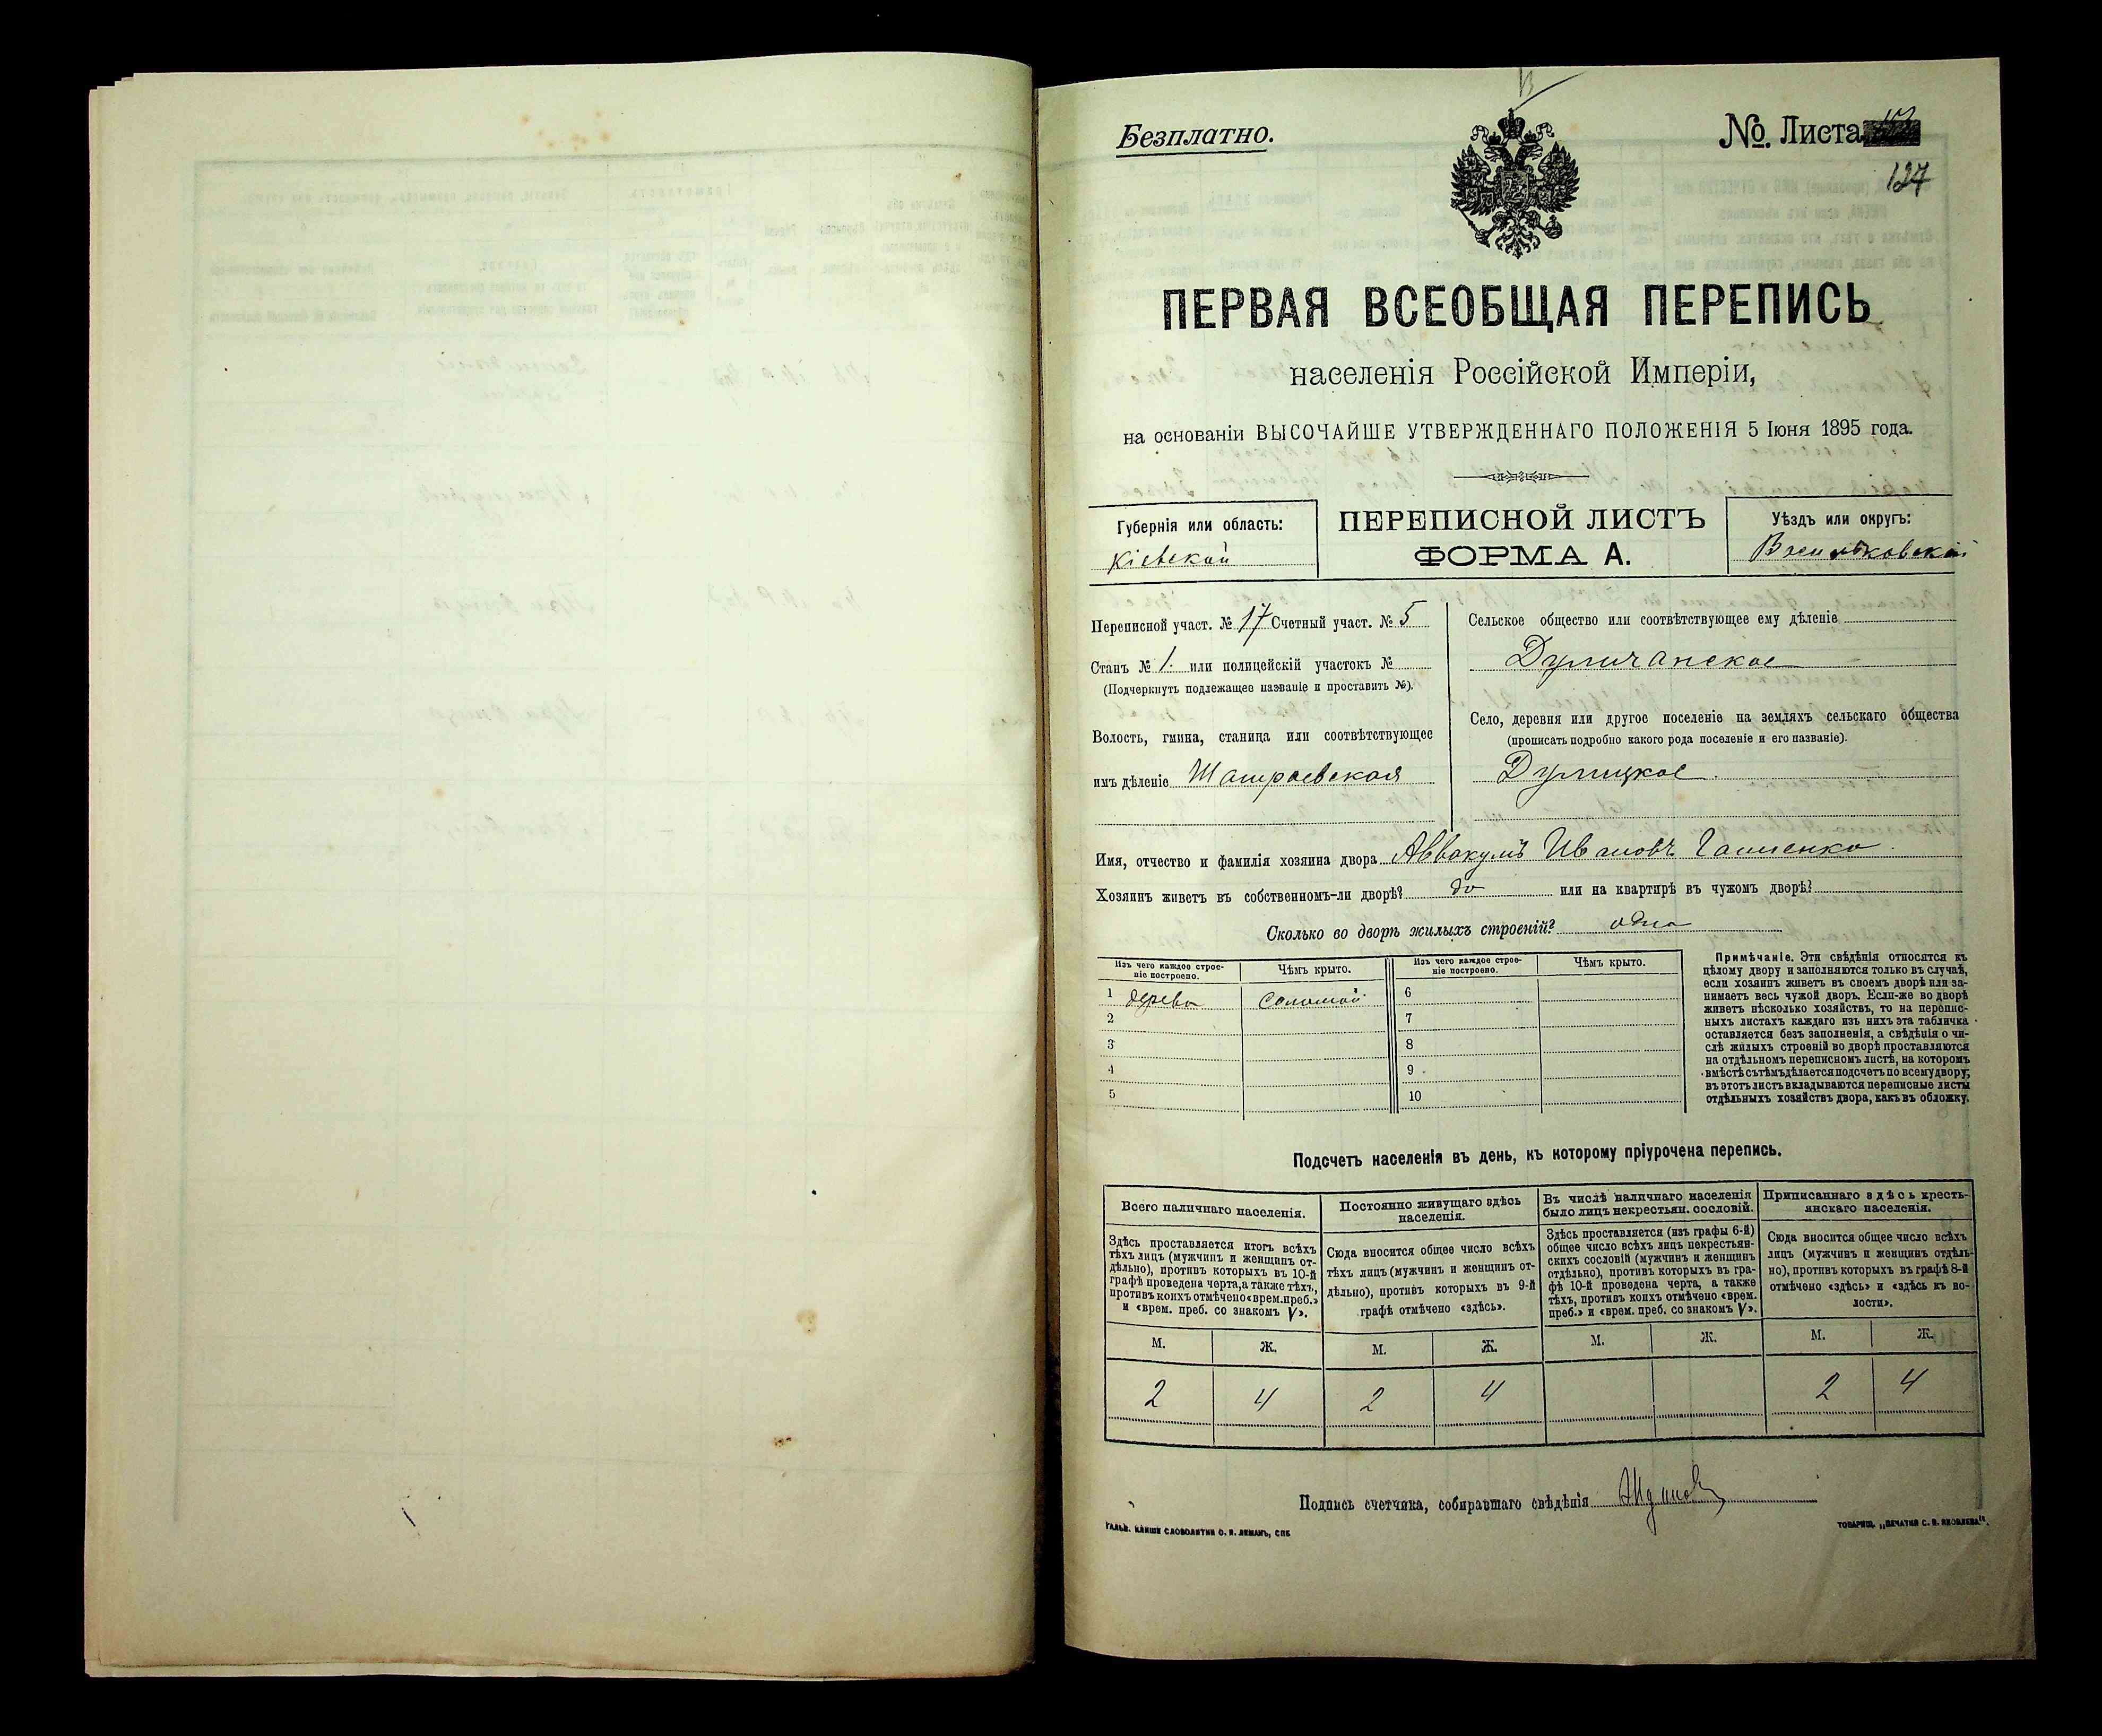 Безплатно.
№ Листа
127
ПЕРВАЯ ВСЕОБЩАЯ ПЕРЕПИСЬ
населенія Россійской Имперіи,
на основаніи ВЫСОЧАЙШЕ УТВЕРЖДЕННАГО ПОЛОЖЕНІЯ 5 Іюня 1895 года.
Губернія или область:
Кіевской
ПЕРЕПИСНОЙ ЛИСТЪ
ФОРМА А.
Уѣздъ или округъ:
Васильковскій
Переписной участ. № 17 Счетный участ. № 5
Станъ № 1. или полицейскій участокъ №
(Подчеркнуть подлежащее названіе и проставить №).
Волость, гмина, станица или соотвѣтствующее
имъ дѣленіе Шамраевская
Сельское общество или соотвѣтствующее ему дѣленіе
Дуличанское
Село, деревня или другое поселеніе на земляхъ сельскаго общества
(прописать подробно какого рода поселеніе и его названіе).
Дулицкое.
Имя, отчество и фамилія хозяина двора Аввакумъ Ивановъ
Хозяинъ живетъ въ собственномъ-ли дворѣ? да или на квартирѣ въ чужомъ дворѣ?
Сколько во дворѣ жилыхъ строеній? одно
Изъ чего каждое строе-
ніе построено.
Чѣмъ крыто.
Изъ чего каждое строе-
ніе построено.
Чѣмъ крыто.
1 дерева соломой 6
2 7
3 8
4 9
5 10
Примѣчаніе. Эти свѣдѣнія относятся къ
цѣлому двору и заполняются только въ случаѣ,
если хозяинъ живетъ въ своемъ дворѣ или за-
нимаетъ весь чужой дворъ. Если-же во дворѣ
живетъ нѣсколько хозяйствъ, то на перепис-
ныхъ листахъ каждаго изъ нихъ эта табличка
оставляется безъ заполненія, а свѣдѣнія о чи-
слѣ жилыхъ строеній во дворѣ проставляются
на отдѣльномъ переписномъ листѣ, на которомъ
вмѣстѣ съ тѣмъ дѣлается подсчетъ по всему двору;
въ этотъ листъ вкладываются переписные листы
отдѣльныхъ хозяйствъ двора, какъ въ обложку.
Подсчетъ населенія въ день, къ которому пріурочена перепись.
Всего наличнаго населенія.
Здѣсь проставляется итогъ всѣхъ
тѣхъ лицъ (мужчинъ и женщинъ от-
дѣльно), противъ которыхъ въ 10-й
графѣ проведена черта, а также тѣхъ,
противъ коихъ отмѣчено «врем. преб.»
и «врем. преб. со знакомъ V».
Постоянно живущаго здѣсь
населенія.
Сюда вносится общее число всѣхъ
тѣхъ лицъ (мужчинъ и женщинъ от-
дѣльно), противъ которыхъ въ 9-й
графѣ отмѣчено «здѣсь».
Въ числѣ наличнаго населенія
было лицъ некрестьян. сословій.
Здѣсь проставляется (изъ графы 6-й)
общее число всѣхъ лицъ некрестьян-
скихъ сословій (мужчинъ и женщинъ
отдѣльно), противъ которыхъ въ гра-
фѣ 10-й проведена черта, а также
тѣхъ, противъ коихъ отмѣчено «врем.
преб.» и «врем. преб. со знакомъ V».
Приписаннаго здѣсь кресть-
янскаго населенія.
Сюда вносится общее число всѣхъ
лицъ (мужчинъ и женщинъ отдѣль-
но), противъ которыхъ въ графѣ 8-й
отмѣчено «здѣсь» и «здѣсь къ во-
лости».
М. Ж. М. Ж. М. Ж. М. Ж.
2 4 2 4 2 4
Подпись счетчика, собиравшаго свѣдѣнія
ГАЛЬВ. КЛИШЕ СЛОВОЛИТНИ О. И. ЛЕМАНЪ, СПБ
ТОВАРИЩ. „ПЕЧАТНЯ С. П. ЯКОВЛЕВА“.